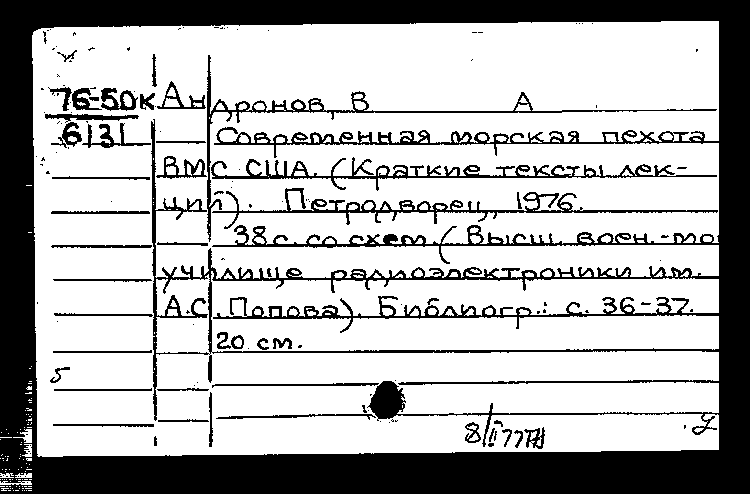 76-50к Андронов, В А
6131 Современная морская пехота
ВМС США. (Краткие тексты лек-
ций). Петродворец, 1976.
38 с. со схем. (Высш. воен.-мо
училище радиоэлектроники им.
А.С. Попова). Библиогр.: с. 36-37.
20 см.
5
8/II 77